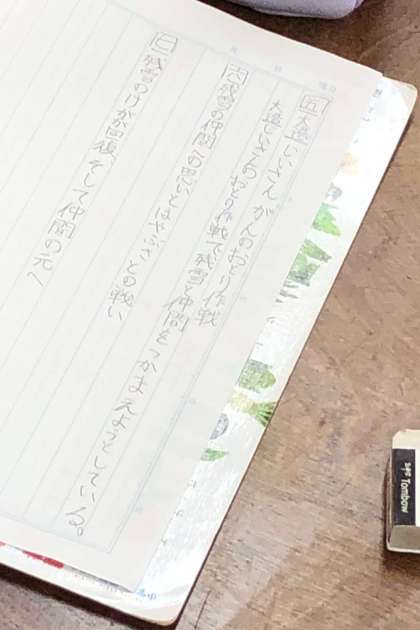 月 日 曜日
五 大造じいさん がんのおとり作戦
大造じいさんのおとり作戦で残雪の仲間をつかまえようとしている。
六 残雪の仲間への思いとはやぶさとの戦い
七 残雪のけがが回復、そして仲間の元へ
Tombow